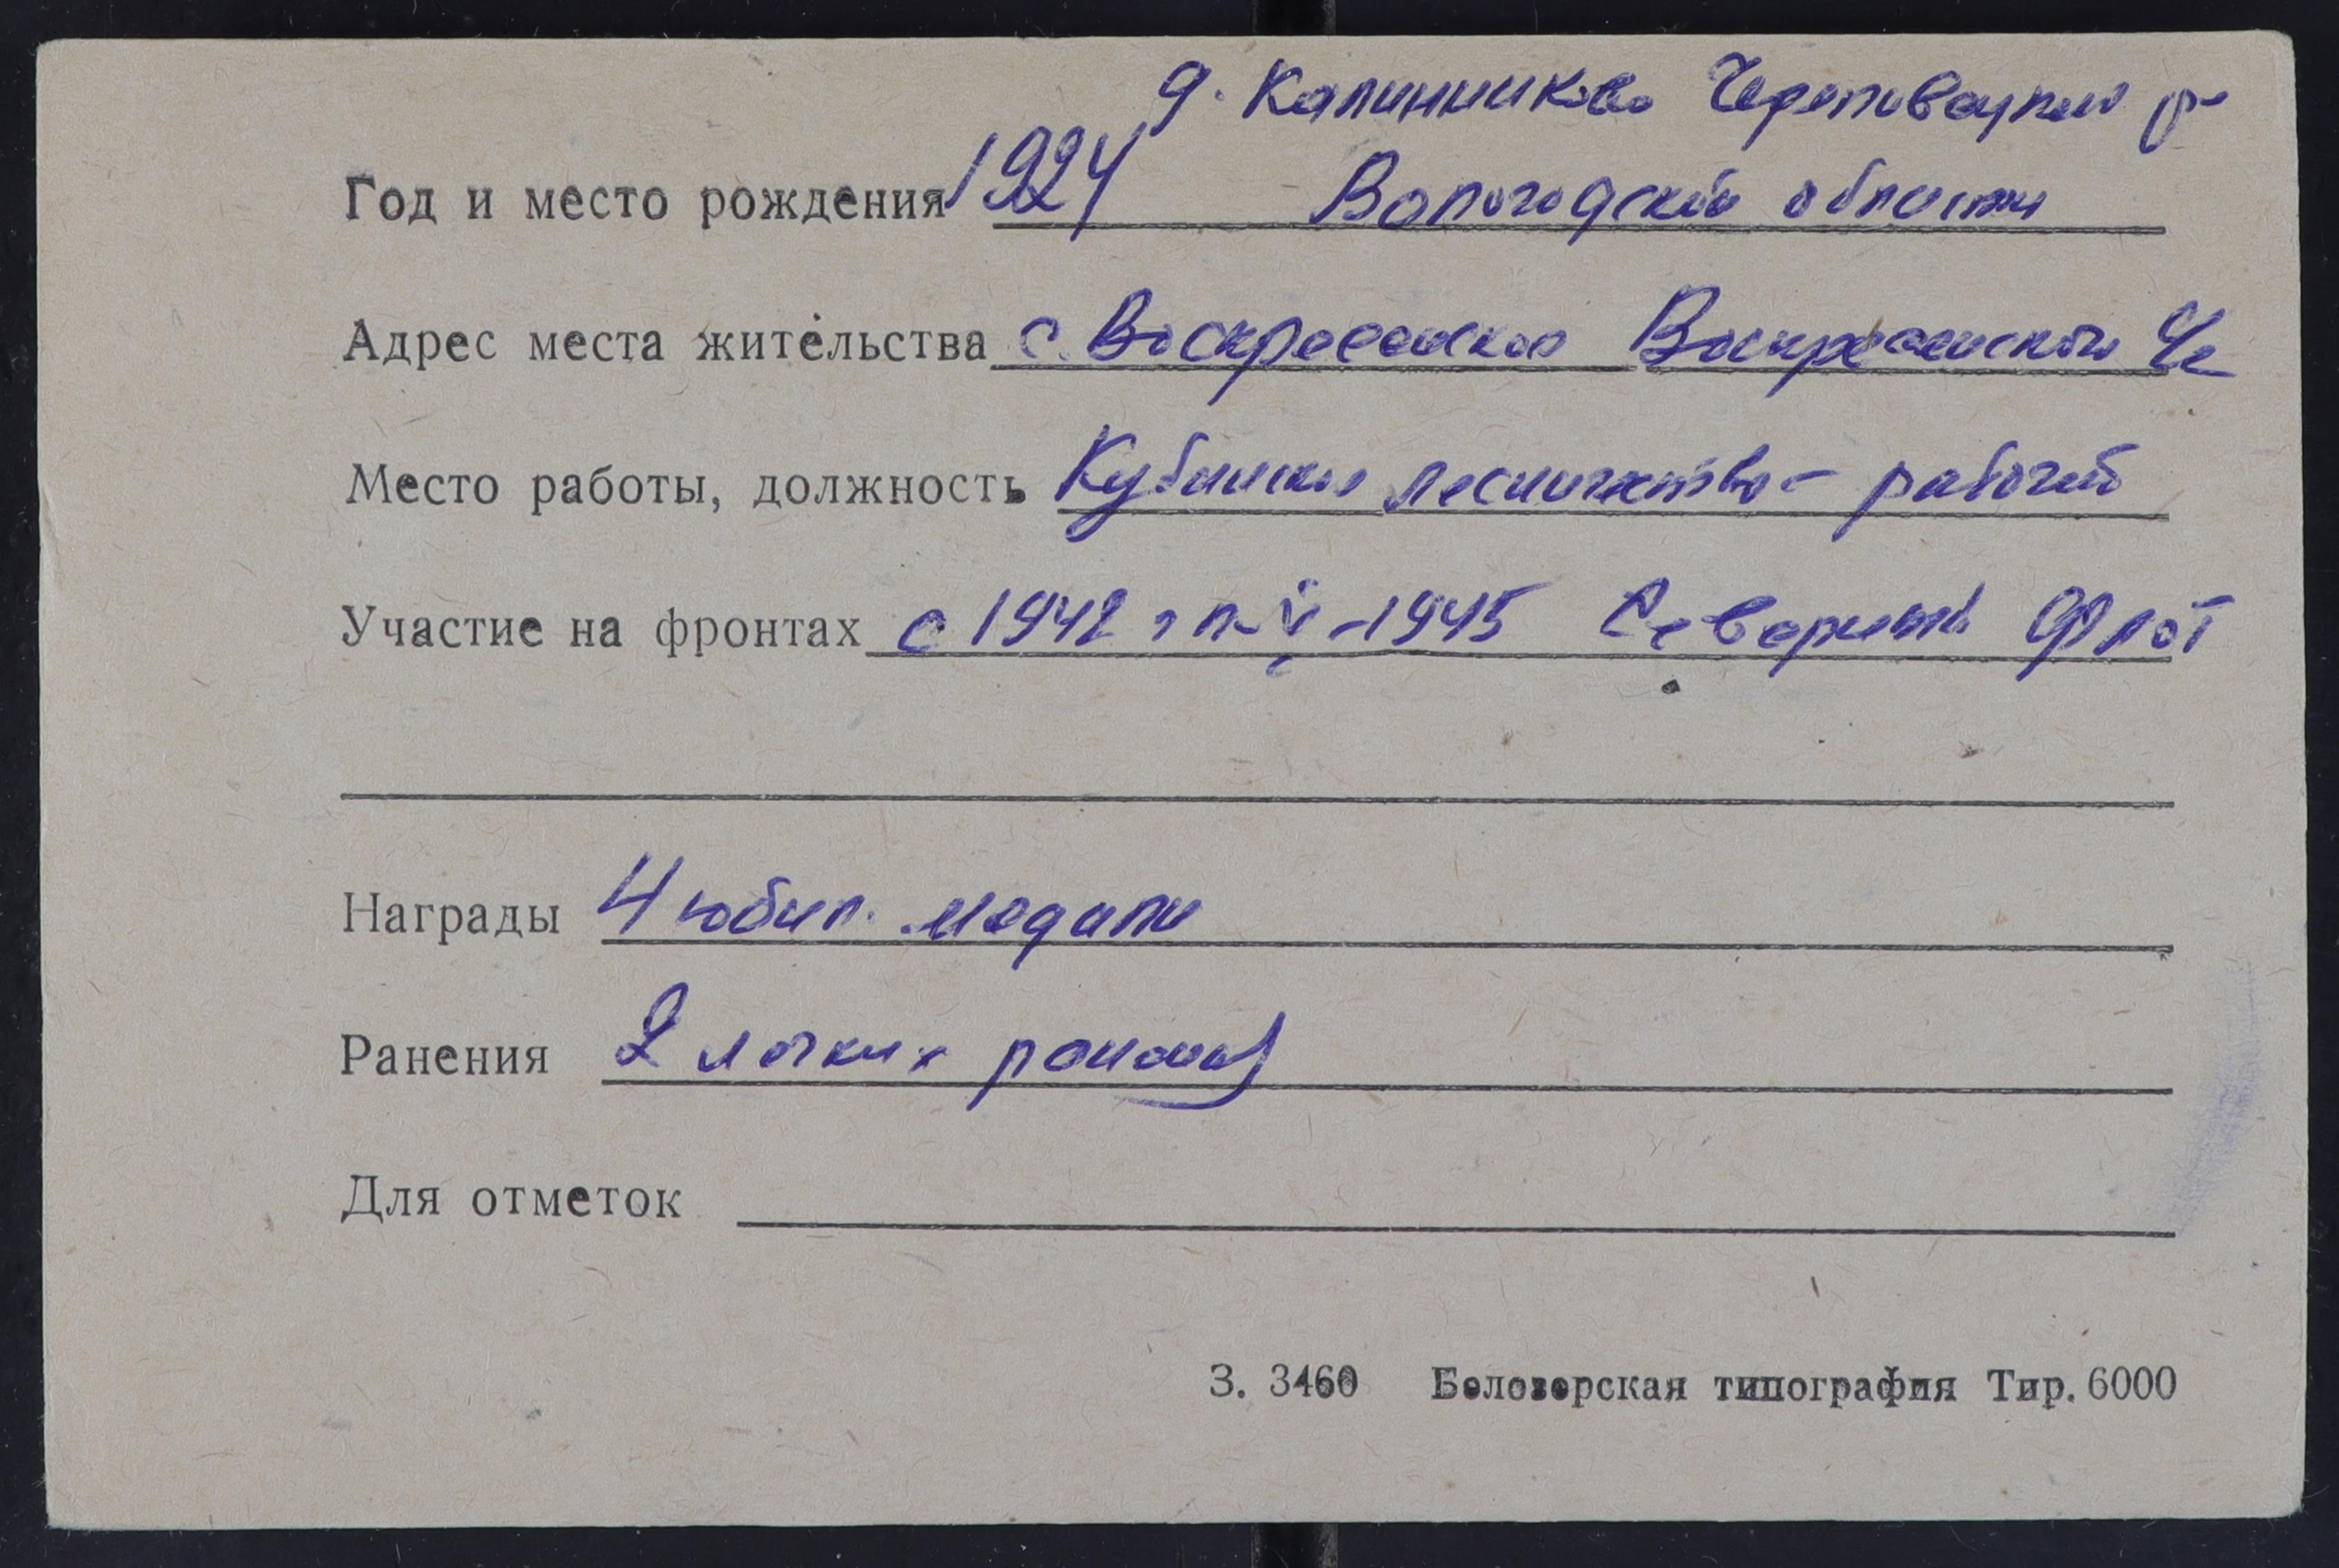 д. Калинниково Череповецкого р-
Год и место рождения 1924 Вологодской области
Адрес места жительства с. Воскресенское Воскресенского Че
Место работы, должность Кубинское лесничество - рабочий
Участие на фронтах с 1942 г п- V -1945 Северный Флот
Награды 4 юбил. медали
Ранения 2 легких ранения
Для отметок
З. 3460 Белозерская типография Тир. 6000